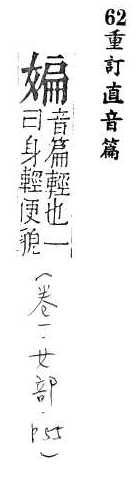 62重訂直音篇
媥音篇輕也一
曰身輕便貌
(卷一·女部·P55)